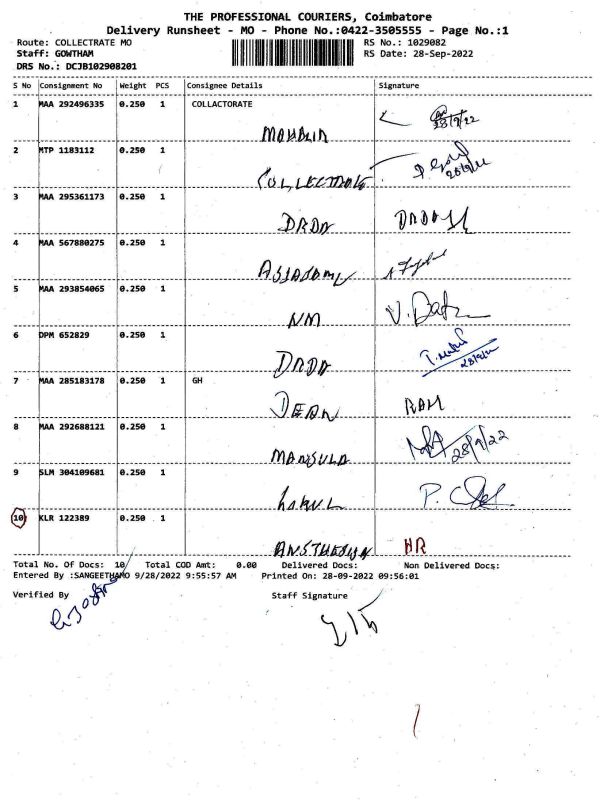 THE PROFESSIONAL COURIERS, Coimbatore
Delivery Runsheet - MO - Phone No.:0422-3505555 - Page No.:1
Route: COLLECTRATE MO RS No.: 1029082
Staff: GOWTHAM RS Date: 28-Sep-2022
DRS No.: DCJB102908201
S No Consignment No Weight PCS Consignee Details Signature
1 MAA 292496335 0.250 1 COLLACTORATE
28/9/22
2 MTP 1183112 0.250 1
COLLECTRATE
3 MAA 295361173 0.250 1
DRDA DRDA
4 MAA 567880275 0.250 1
5 MAA 293854065 0.250 1
NM V.
6 DPM 652829 0.250 1
DRDA
7 MAA 285183178 0.250 1 GH
DEAN RAM
8 MAA 292688121 0.250 1
MANJULA 28/9/22
9 SLM 304109681 0.250 1
P.
10 KLR 122389 0.250 1
HR
Total No. Of Docs: 10 Total COD Amt: 0.00 Delivered Docs: Non Delivered Docs:
Entered By :SANGEETHAMO 9/28/2022 9:55:57 AM Printed On: 28-09-2022 09:56:01
Verified By Staff Signature